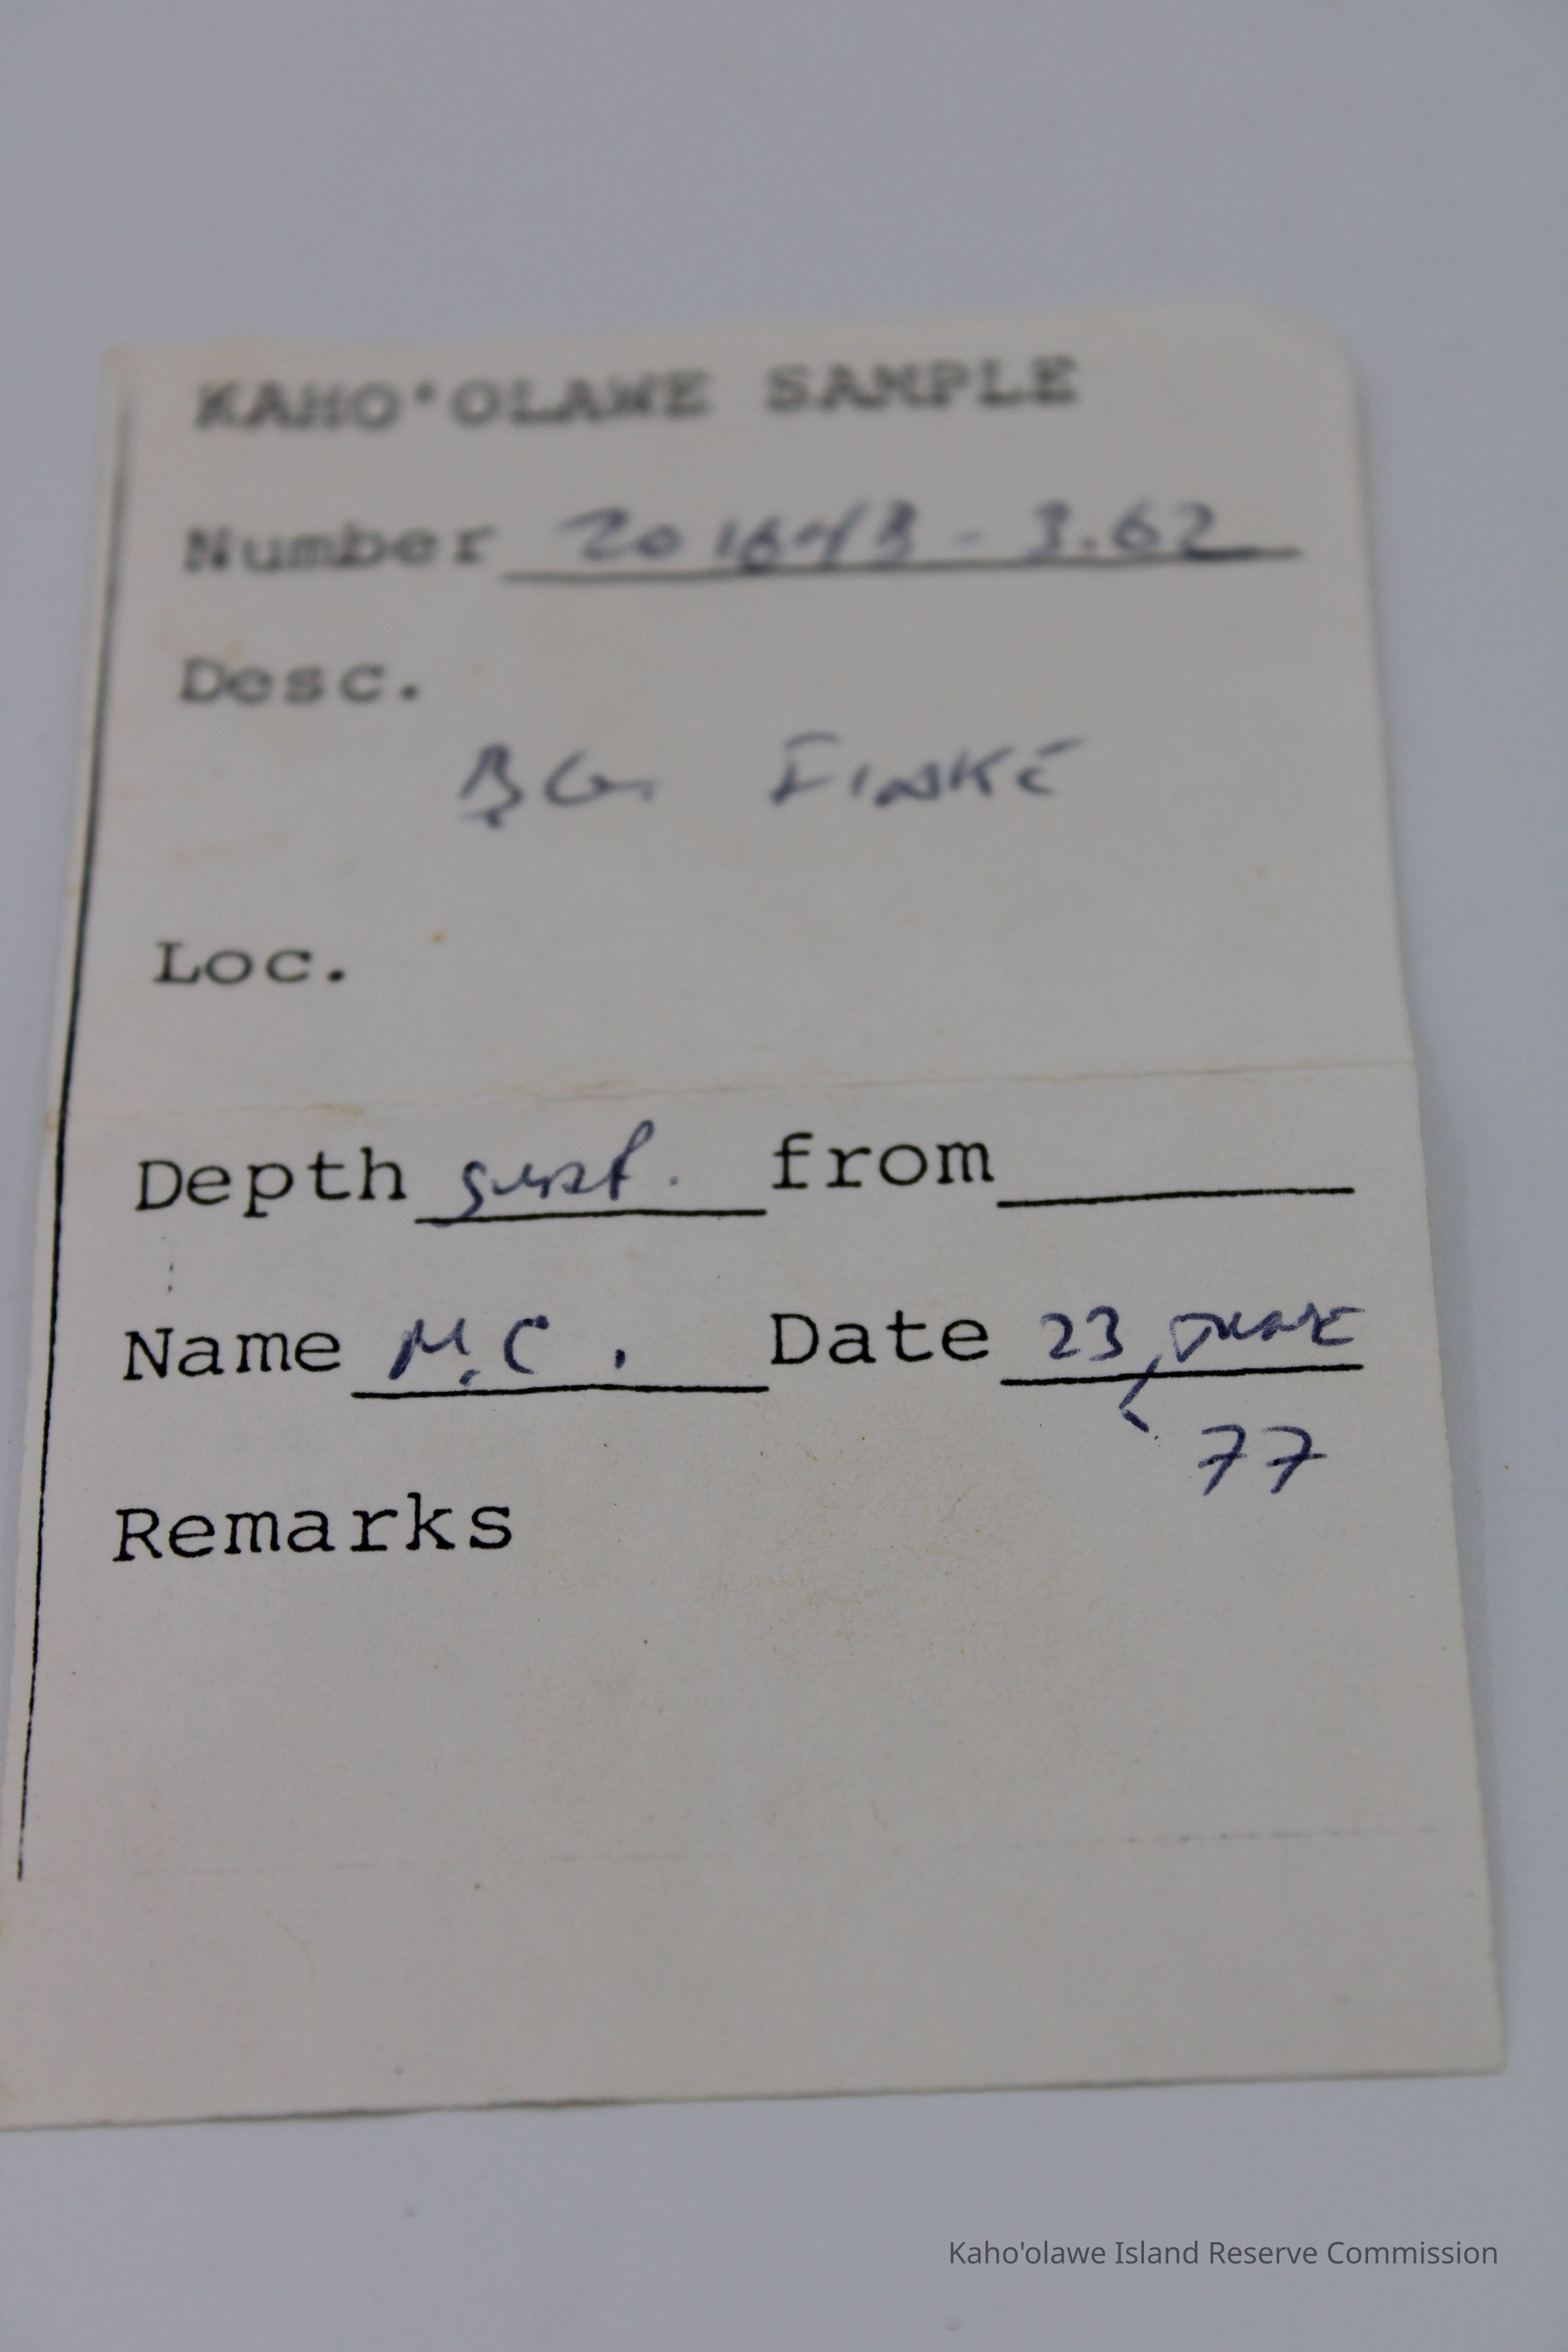 KAHO'OLAWE SAMPLE
Number - 3.62
Desc.
BG. FLAKE
Loc.
Depth surf. from
Name M.C. Date 23 JUNE
77
Remarks
Kaho'olawe Island Reserve Commission